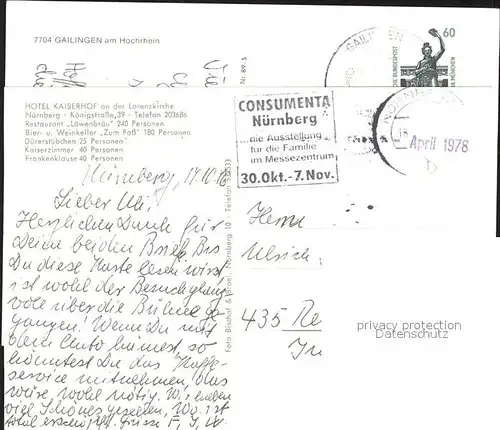 7704 GAILINGEN am Hochrhein
GAILINGEN
60
DEUTSCHE BUNDESPOST
BAVARIA MÜNCHEN
Nr. 89. S
HOTEL KAISERHOF an der Lorenzkirche
Nürnberg - Königstraße 39 - Telefon 203686
Restaurant „Löwenbräu" 240 Personen
Bier- u. Weinkeller „Zum Faß" 180 Personen
Dürerstübchen 25 Personen
Kaiserzimmer 40 Personen
Frankenklause 40 Personen
CONSUMENTA
Nürnberg
...die Ausstellung
für die Familie
im Messezentrum
30.Okt.-7.Nov.
April 1978
Nürnberg, 17.10.
Lieber Uli,
Herzlichen Dank für
Deine beiden Briefe. Bis
Du diese Karte lesen wirst
ist wohl der Besuch glanz-
voll über die Bühne ge-
gangen! Wenn Du mit
dem Auto kämest, so
könntest Du das Kaffee-
service mitnehmen, das
wäre wohl nötig. Wir haben
viel Schönes gesehen,
total Grüsse F,
Herrn
Ulrich
435 Re
In
Nürnberg 10 - Telefon
privacy protection
Datenschutz